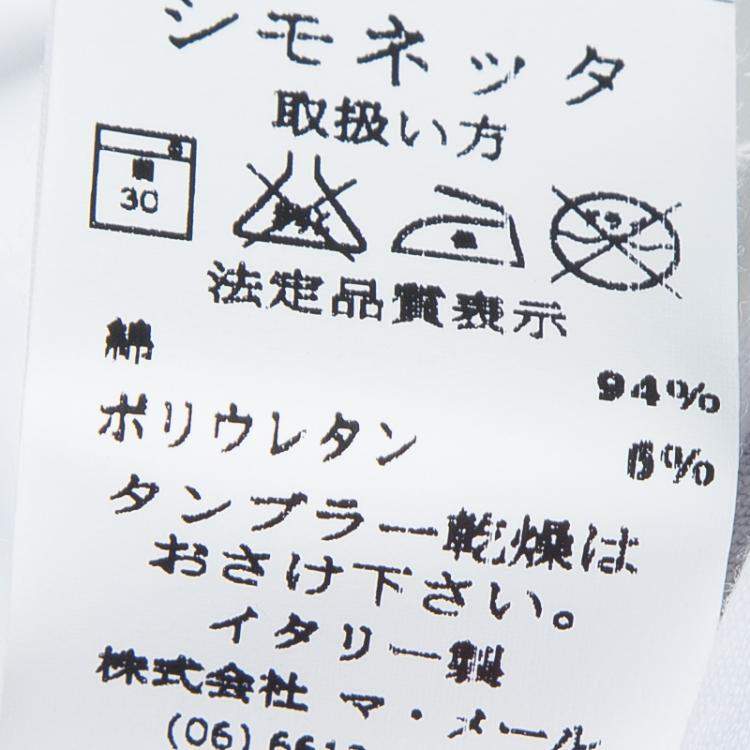 シモネッタ
取扱い方
30
法定品質表示
綿 94%
ポリウレタン 6%
タンブラー乾燥は
おさけ下さい。
イタリー製
株式会社 マ・メール
(06)